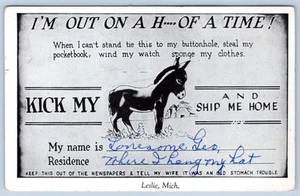 I'M OUT ON A H---- OF A TIME!
When I can't stand tie this to my buttonhole, steal my
pocketbook, wind my watch sponge my clothes.
KICK MY
AND
SHIP ME HOME
My name is Lonesome Geo,
Residence Where I hang my hat
KEEP THIS OUT OF THE NEWSPAPERS & TELL MY WIFE IT WAS AN OLD STOMACH TROUBLE
Leslie, Mich.